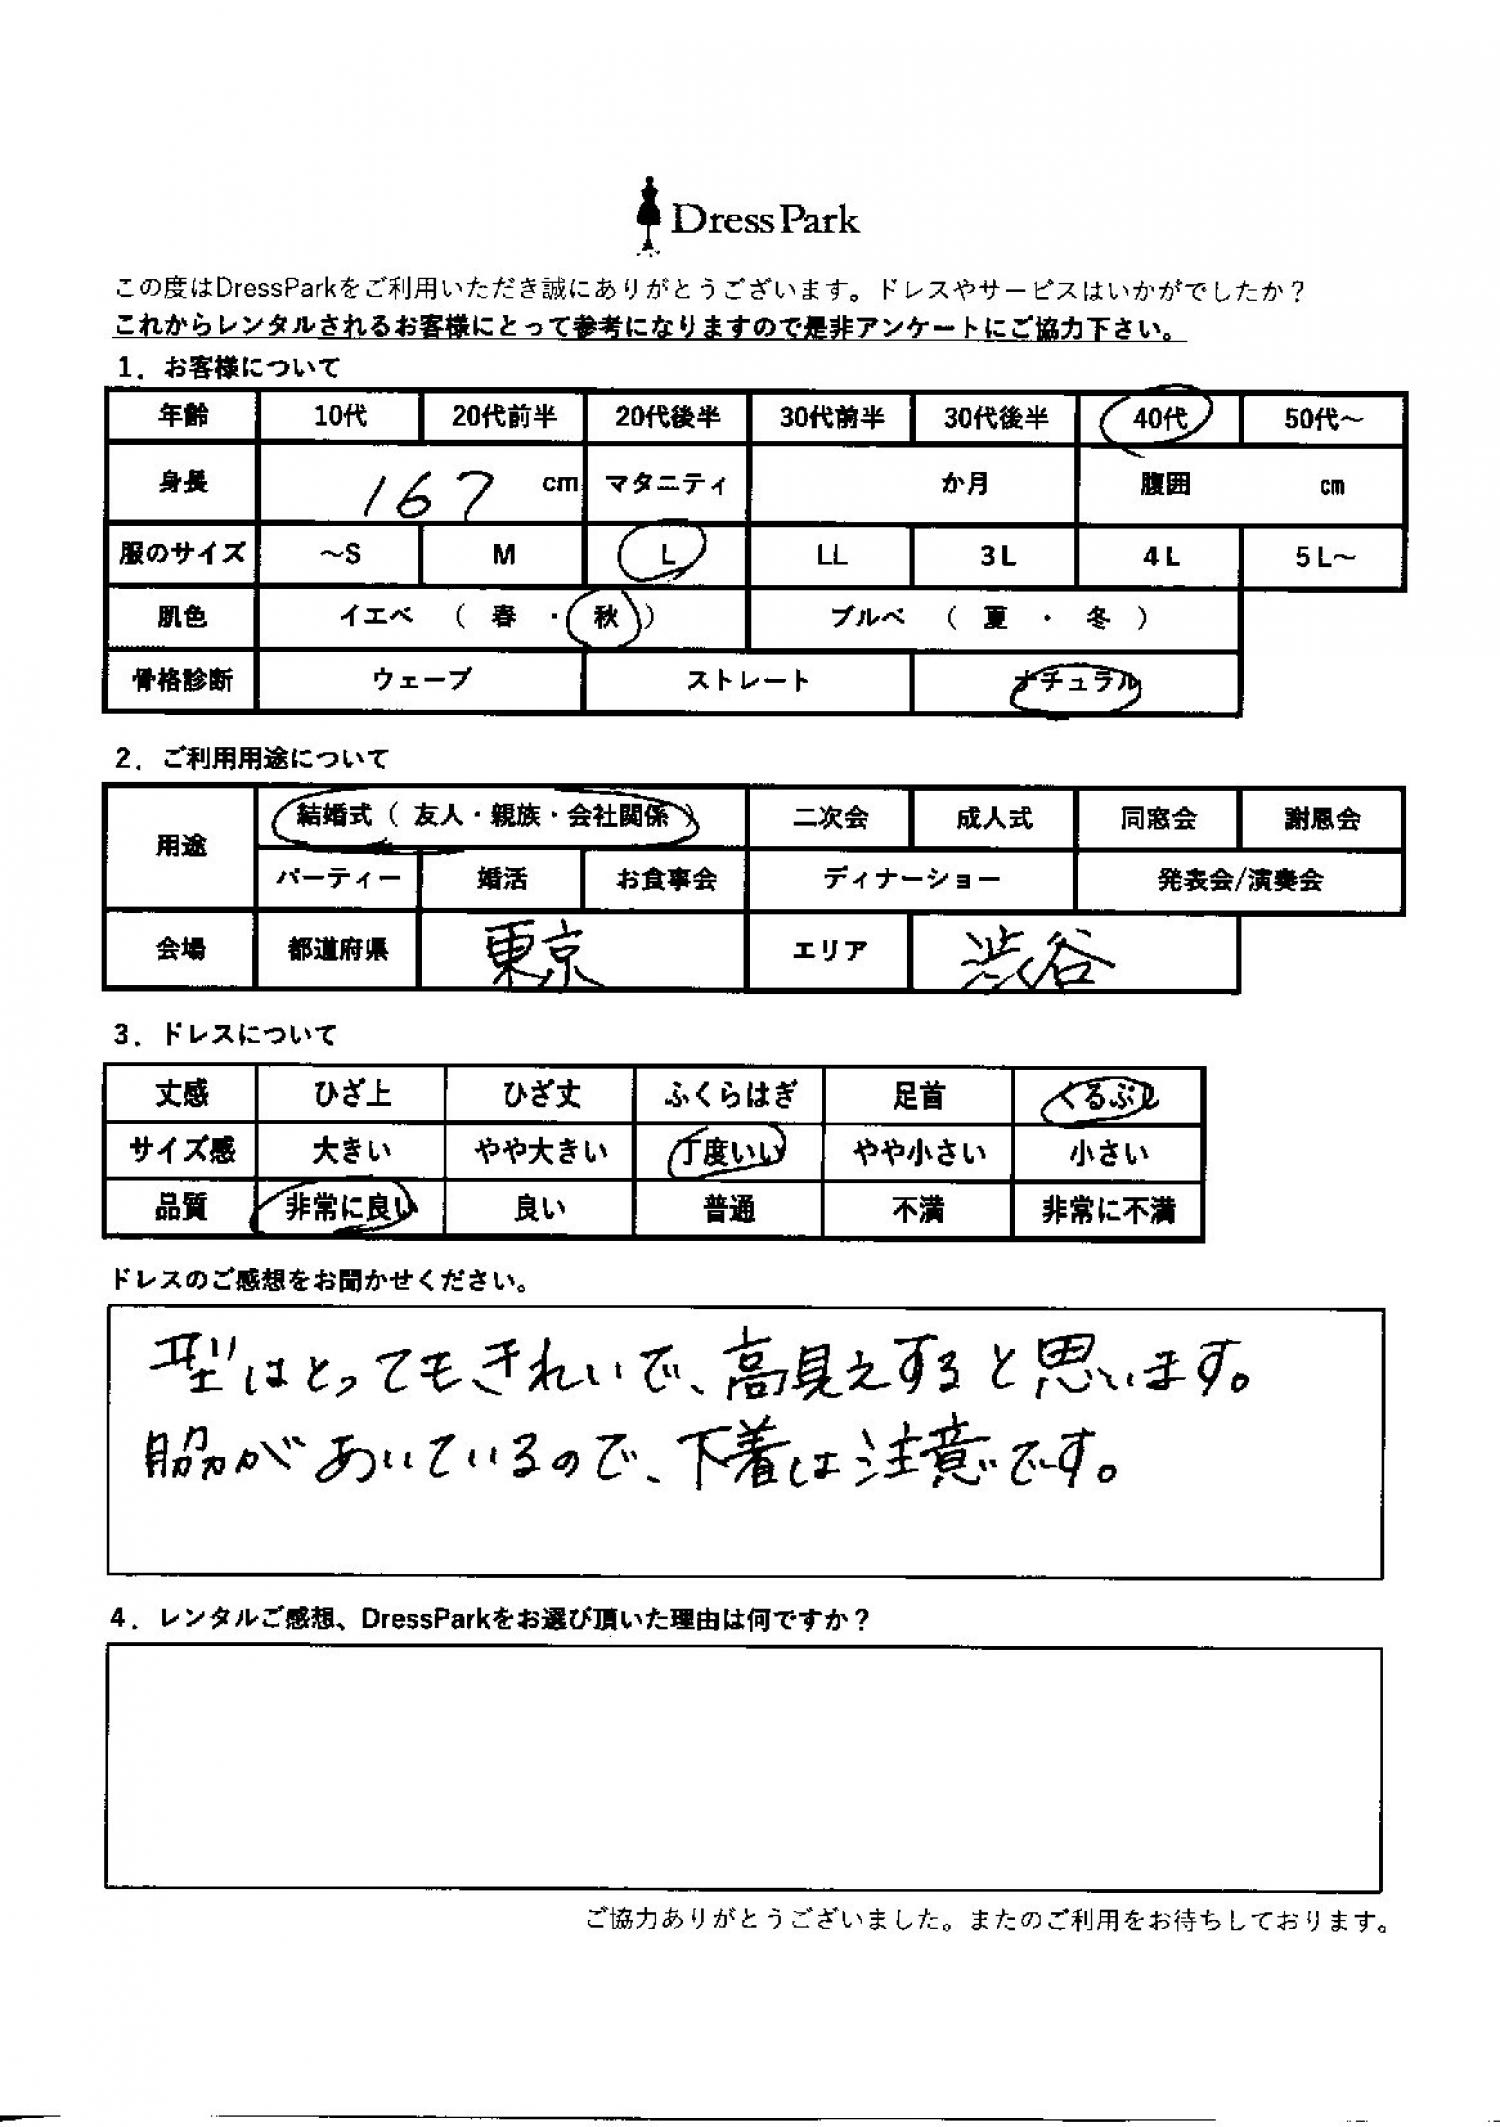 Dress Park
この度はDressParkをご利用いただき誠にありがとうございます。ドレスやサービスはいかがでしたか？
これからレンタルされるお客様にとって参考になりますので是非アンケートにご協力下さい。
1．お客様について
年齢 10代 20代前半 20代後半 30代前半 30代後半 40代 50代～
身長 167 cm マタニティ か月 腹囲 cm
服のサイズ ～S M L LL 3L 4L 5L～
肌色 イエベ （ 春 ・ 秋 ） ブルベ （ 夏 ・ 冬 ）
骨格診断 ウェーブ ストレート ナチュラル
2．ご利用用途について
用途 結婚式（ 友人・親族・会社関係 ） 二次会 成人式 同窓会 謝恩会
パーティー 婚活 お食事会 ディナーショー 発表会/演奏会
会場 都道府県 東京 エリア 渋谷
3．ドレスについて
丈感 ひざ上 ひざ丈 ふくらはぎ 足首 くるぶし
サイズ感 大きい やや大きい 丁度いい やや小さい 小さい
品質 非常に良い 良い 普通 不満 非常に不満
ドレスのご感想をお聞かせください。
型はとってもきれいで、高見えすると思います。
脇があいているので、下着は注意です。
4．レンタルご感想、DressParkをお選び頂いた理由は何ですか？
ご協力ありがとうございました。またのご利用をお待ちしております。